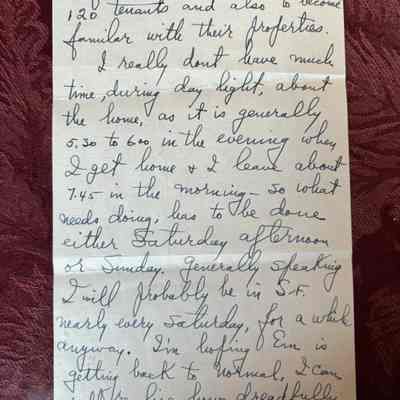 120 tenants and also to become
familar with their properties.
I really dont have much
time, during day light, about
the home, as it is generally
5.30 to 6.00 in the evening when
I get home & I leave about
7.45 in the morning - so what
needs doing, has to be done
either Saturday afternoon
or Sunday. Generally speaking
I will probably be in S.F.
nearly every Saturday, for a while
anyway. I'm hoping Em is
getting back to normal, I can
dreadfully